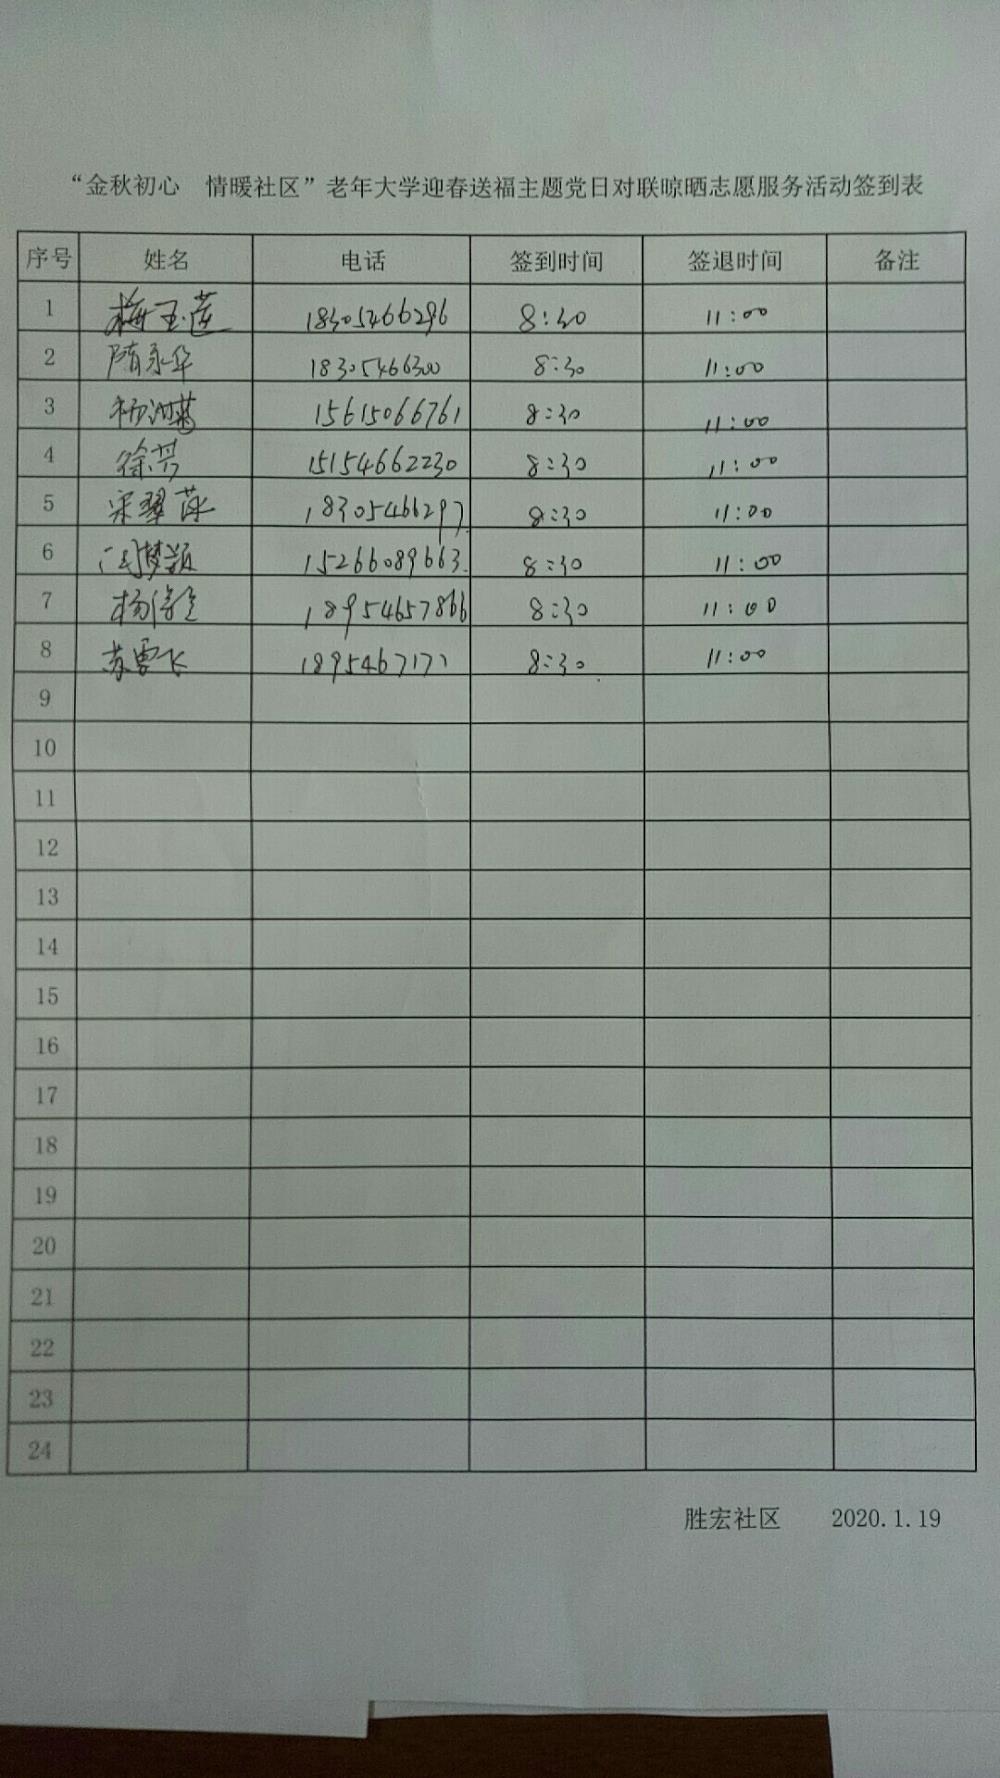 “金秋初心　情暖社区”老年大学迎春送福主题党日对联晾晒志愿服务活动签到表
序号 姓名 电话 签到时间 签退时间 备注
1 梅玉莲 18305466296 8:30 11:00
2 隋永华 18305466300 8:30 11:00
3 杨洪菊 15615066761 8:30 11:00
4 徐芳 15154662230 8:30 11:00
5 宋翠萍 18305466297 8:30 11:00
6 闫梦颖 15266089663 8:30 11:00
7 杨 18954657866 8:30 11:00
8 苏雲飞 1895467171 8:30 11:00
9
10
11
12
13
14
15
16
17
18
19
20
21
22
23
24
胜宏社区 2020.1.19